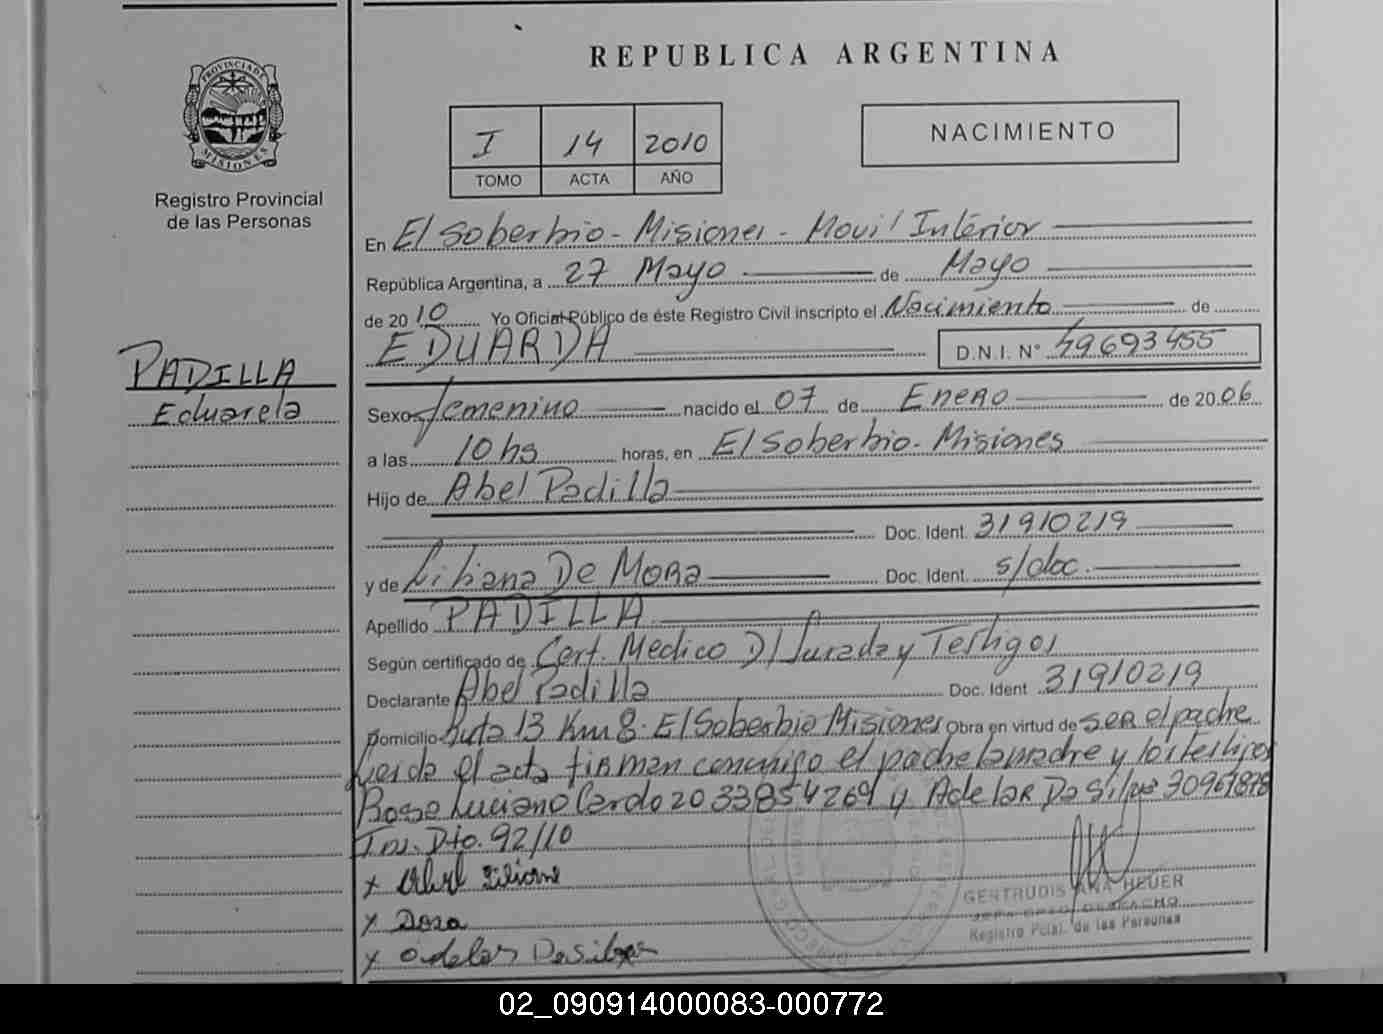 REPUBLICA ARGENTINA
PROVINCIA DE
MISIONES
Registro Provincial
de las Personas
I 14 2010
TOMO ACTA AÑO
NACIMIENTO
En El Soberbio - Misiones - Movil Interior
República Argentina, a 27 Mayo de Mayo
de 20 10 Yo Oficial Público de éste Registro Civil inscripto el Nacimiento de
EDUARDA D.N.I. N° 49693455
PADILLA
Eduarda
Sexo femenino nacido el 07 de ENERO de 20 06
a las 10 hs horas, en El Soberbio - Misiones
Hijo de Abel Padilla
Doc. Ident. 31910219
y de Liliana De MORA Doc. Ident. s/doc.
Apellido PADILLA
Según certificado de Cert. Medico D/Jurada y Testigos
Declarante Abel Padilla Doc. Ident 31910219
Domicilio Ruta 13 Km 8 - El Soberbio Misiones Obra en virtud de SER el padre
Leida el acta firman conmigo el padre la madre y los testigos
Luciano 33854269 y Adelar Da Silva 30961878
Dto. 92/10
x Abel Liliane
x
x Adelar Da Silva
GERTRUDIS ANA HEUER
JEFA DPTO. DESPACHO
Registro Pcial. de las Personas
02_090914000083-000772